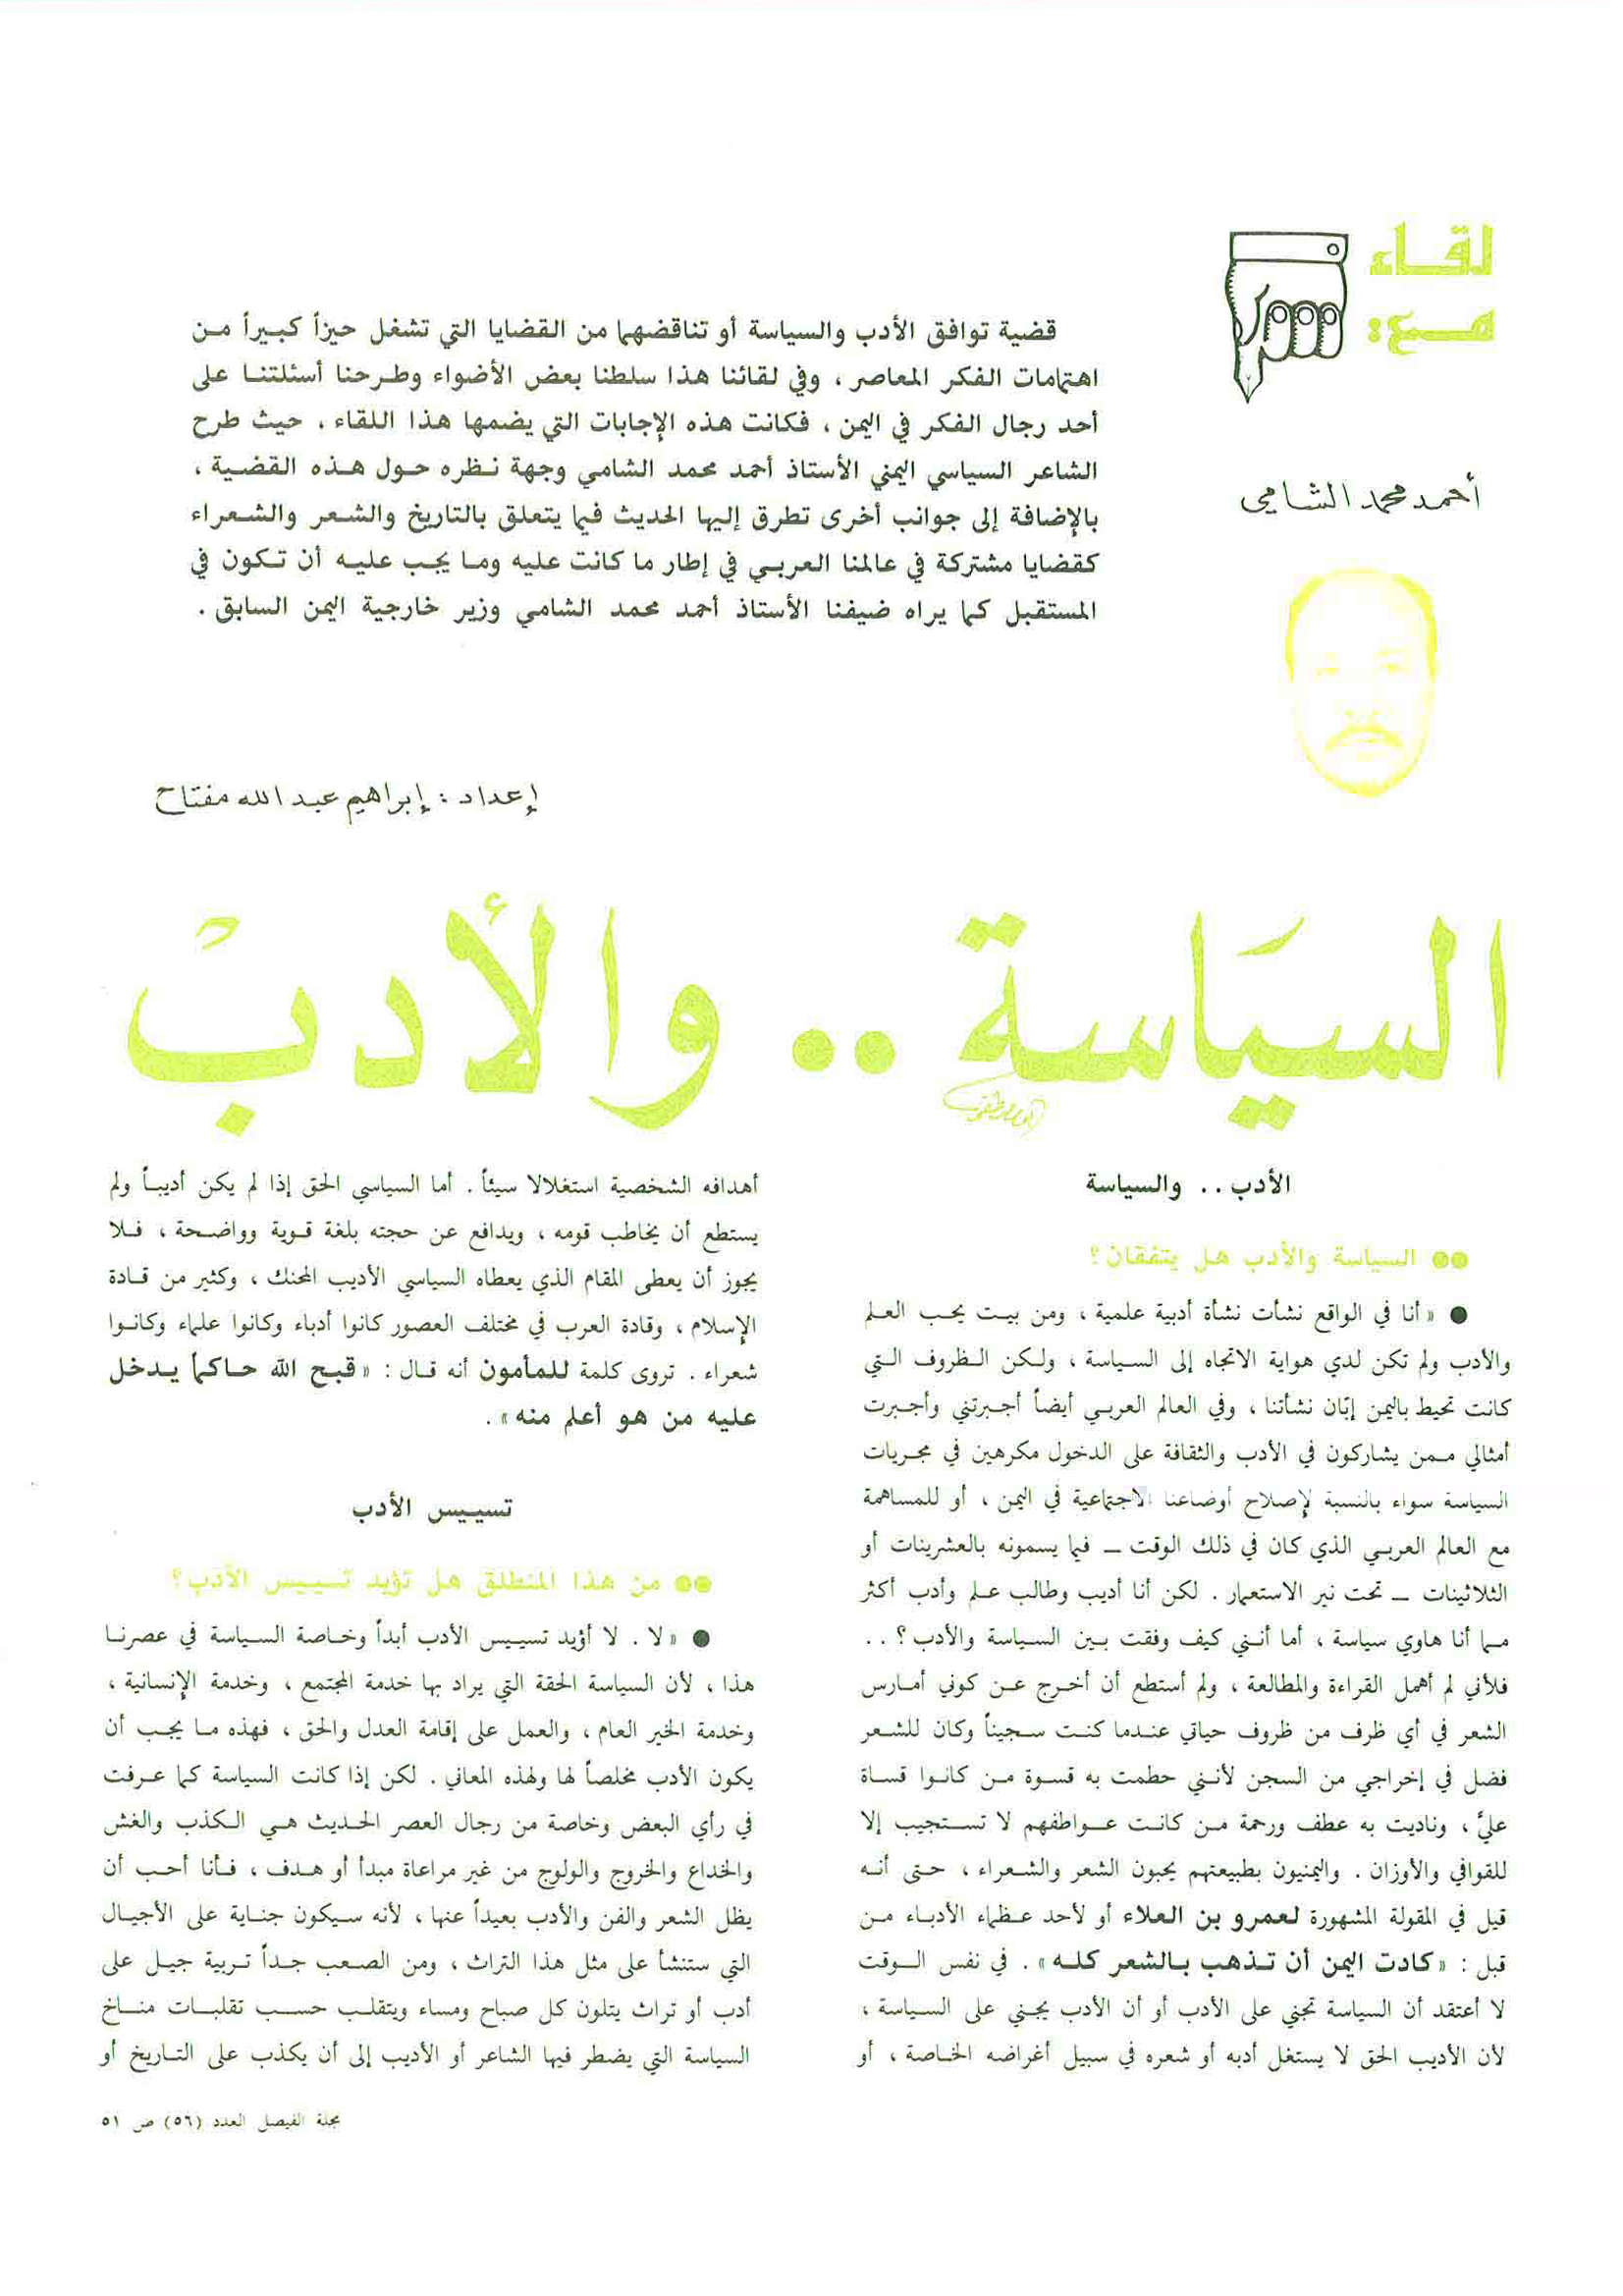 لقاء
مع:
أحمد محمد الشامي
قضية توافق الأدب والسياسة أو تناقضهما من القضايا التي تشغل حيزاً كبيراً من
اهتمامات الفكر المعاصر ، وفي لقائنا هذا سلطنا بعض الأضواء وطرحنا أسئلتنا على
أحد رجال الفكر في اليمن ، فكانت هذه الإجابات التي يضمها هذا اللقاء ، حيث طرح
الشاعر السياسي اليمني الأستاذ أحمد محمد الشامي وجهة نظره حول هذه القضية ،
بالإضافة إلى جوانب أخرى تطرق إليها الحديث فيما يتعلق بالتاريخ والشعر والشعراء
كقضايا مشتركة في عالمنا العربي في إطار ما كانت عليه وما يجب عليه أن تكون في
المستقبل كما يراه ضيفنا الأستاذ أحمد محمد الشامي وزير خارجية اليمن السابق .
إعداد : إبراهيم عبد الله مفتاح
السياسة .. والأدب
الأدب .. والسياسة
●● السياسة والأدب هل يتفقان ؟
● « أنا في الواقع نشأت نشأة أدبية علمية ، ومن بيت يحب العلم
والأدب ولم تكن لدي هواية الاتجاه إلى السياسة ، ولكن الظروف التي
كانت تحيط باليمن إبّان نشأتنا ، وفي العالم العربي أيضاً أجبرتني وأجبرت
أمثالي ممن يشاركون في الأدب والثقافة على الدخول مكرهين في مجريات
السياسة سواء بالنسبة لإصلاح أوضاعنا الاجتماعية في اليمن ، أو للمساهمة
مع العالم العربي الذي كان في ذلك الوقت ــ فيما يسمونه بالعشرينات أو
الثلاثينات ــ تحت نير الاستعمار . لكن أنا أديب وطالب علم وأدب أكثر
مما أنا هاوي سياسة ، أما أنني كيف وفقت بين السياسة والأدب ؟ ..
فلأني لم أهمل القراءة والمطالعة ، ولم أستطع أن أخرج عن كوني أمارس
الشعر في أي ظرف من ظروف حياتي عندما كنت سجيناً وكان للشعر
فضل في إخراجي من السجن لأنني حطمت به قسوة من كانوا قساة
عليَّ ، وناديت به عطف ورحمة من كانت عواطفهم لا تستجيب إلا
للقوافي والأوزان . واليمنيون بطبيعتهم يحبون الشعر والشعراء ، حتى أنه
قيل في المقولة المشهورة لعمرو بن العلاء أو لأحد عظماء الأدباء من
قبل : « كادت اليمن أن تذهب بالشعر كله » . في نفس الوقت
لا أعتقد أن السياسة تجني على الأدب أو أن الأدب يجني على السياسة ،
لأن الأديب الحق لا يستغل أدبه أو شعره في سبيل أغراضه الخاصة ، أو
أهدافه الشخصية استغلالا سيئاً . أما السياسي الحق إذا لم يكن أديباً ولم
يستطع أن يخاطب قومه ، ويدافع عن حجته بلغة قوية وواضحة ، فلا
يجوز أن يعطى المقام الذي يعطاه السياسي الأديب المحنك ، وكثير من قادة
الإسلام ، وقادة العرب في مختلف العصور كانوا أدباء وكانوا علماء وكانوا
شعراء . تروى كلمة للمأمون أنه قال : « قبح الله حاكماً يدخل
عليه من هو أعلم منه » .
تسييس الأدب
●● من هذا المنطلق هل تؤيد تسييس الأدب ؟
● « لا . لا أؤيد تسييس الأدب أبداً وخاصة السياسة في عصرنا
هذا ، لأن السياسة الحقة التي يراد بها خدمة المجتمع ، وخدمة الإنسانية ،
وخدمة الخير العام ، والعمل على إقامة العدل والحق ، فهذه ما يجب أن
يكون الأدب مخلصاً لها ولهذه المعاني . لكن إذا كانت السياسة كما عرفت
في رأي البعض وخاصة من رجال العصر الحديث هي الكذب والغش
والخداع والخروج والولوج من غير مراعاة مبدأ أو هدف ، فأنا أحب أن
يظل الشعر والفن والأدب بعيداً عنها ، لأنه سيكون جناية على الأجيال
التي ستنشأ على مثل هذا التراث ، ومن الصعب جداً تربية جيل على
أدب أو تراث يتلون كل صباح ومساء ويتقلب حسب تقلبات مناخ
السياسة التي يضطر فيها الشاعر أو الأديب إلى أن يكذب على التاريخ أو
مجلة الفيصل العدد (٥٦) ص ٥١